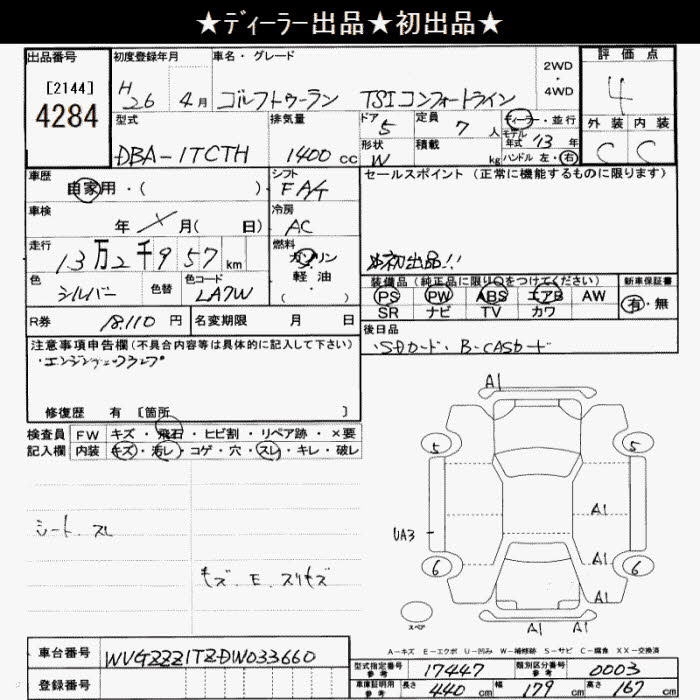 ★ディーラー出品★初出品★
出品番号 初度登録年月 車名・グレード 2WD・4WD 評価点
[2144] H26 4月 ゴルフトゥーラン TSIコンフォートライン 4
4284 型式 排気量 ドア 5 定員 7人 ディーラー・並行 外装 内装
DBA-1TCTH 1400cc 形状 W 積載 kg モデル年式 '13年 C C
ハンドル 左・右
車歴 自家用・( ) シフト FA4 セールスポイント (正常に機能するものに限ります)
車検 年 月( 日) 冷房 AC
走行 13万2千957km 燃料 ガソリン ※初出品!!
軽油
・( )
色 シルバー 色替 色コード LA7W 装備品 (純正品に限り○をつけてください) 新車保証書
PS PW ABS エアB AW 有・無
R券 18110円 名変期限 月 日 SR ナビ TV カワ
後日品
注意事項申告欄(不具合内容等は具体的に記入して下さい) ・SDカード・B-CASカード
修復歴 有 [箇所 ]
検査員 FW キズ・飛石・ヒビ割・リペア跡・×要
記入欄 内装 キズ・汚レ・コゲ・穴・スレ・キレ・破レ
A1
5 5
シート.スレ UA3 A1
A1
キズ.E.スリキズ 6 6
A1 A1
スペア
A-キズ E-エクボ U-凹み W-補修跡 S-サビ C-腐食 XX-交換済
車台番号 WVGZZZ1TZDW033660
型式指定番号 参考 17447 類別区分番号 参考 0003
登録番号 車庫証明用 参考 長さ 440cm 幅 179cm 高さ 167cm